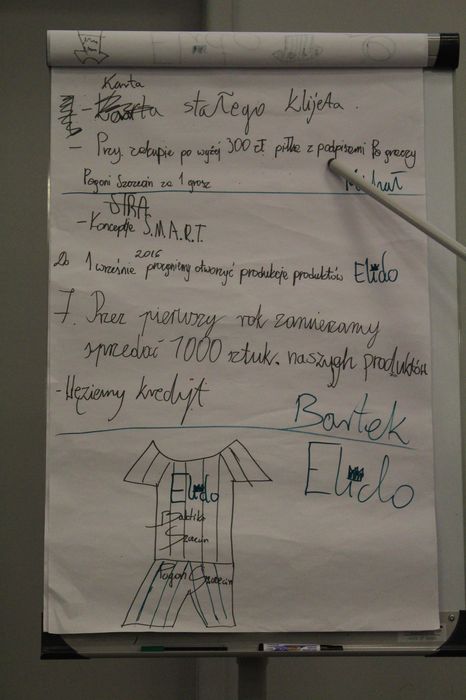 Karta
- stałego klijeta.
- Przy. zakupie po wyżej 300 zł. piłka z podpisami graczy
Pogoni Szczecin za 1 grosz
Michał
- Koncepcje S.M.A.R.T.
2016
Do 1 wrześnie pragniemy otworzyć produkcje produktów Elido
7. Przez pierwszy rok zamierzamy
sprzedać 1000 sztuk. naszygh produktów
- Weźiemy kredyjt
Bartek
Elido
Elido
Baltika
Szczecin
Pogoń Szczecin